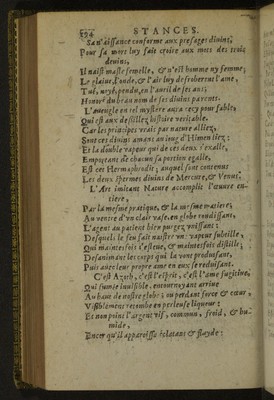 294 STANCES.
Sa naissance conforme aux presages divins,
Pour sa mere luy fait croire aux mots des trois
devins,
Il naist masle femelle, & n'est homme ny femme;
Le glaive, l'onde, & l'air luy desroberent l'ame,
Tué, noyé, pendu, en l'avril de ses ans;
Honoré du beau nom de ses divins parents.
L'aveugle en tel mystere aura cecy pour fable,
Qui est aux dessillez histoire veritable.
Car les principes vrais par nature alliez,
Sont ces divins amans au joug d'Himen liez:
Et la double vapeur qui de ces deux s'exalle,
Emportant de chacun sa portion egalle,
Est cet Hermaphrodit; auquel sont contenus
Les deux spermes divins de Mercure, & Venus.
L'Art imitant Nature accomplit l'œuvre en-
tiere,
Par la mesme pratique, & la mesme matiere;
Au ventre d'un clair vase, en globe rondissant,
L'agent au patient bien purgez, unissant:
Desquels le feu fait naistre un vapeur subtille,
Qui maintesfois s'esleve, & maintesfois distille;
Desanimant les corps qui la vont produisant,
Puis avec leur propre ame en eux se reduisant.
C'est Azoth, c'est l'esprit, c'est l'ame fugitive,
Qui fumee invisible, environnant arrive
Au haut de nostre globe; où perdant force & cœur,
Visiblement retombe en perleuse liqueur:
Et non point l'argent vif, commun, froid, & hu-
mide,
Encor qu'il apparoisse éclatant & fluyde: